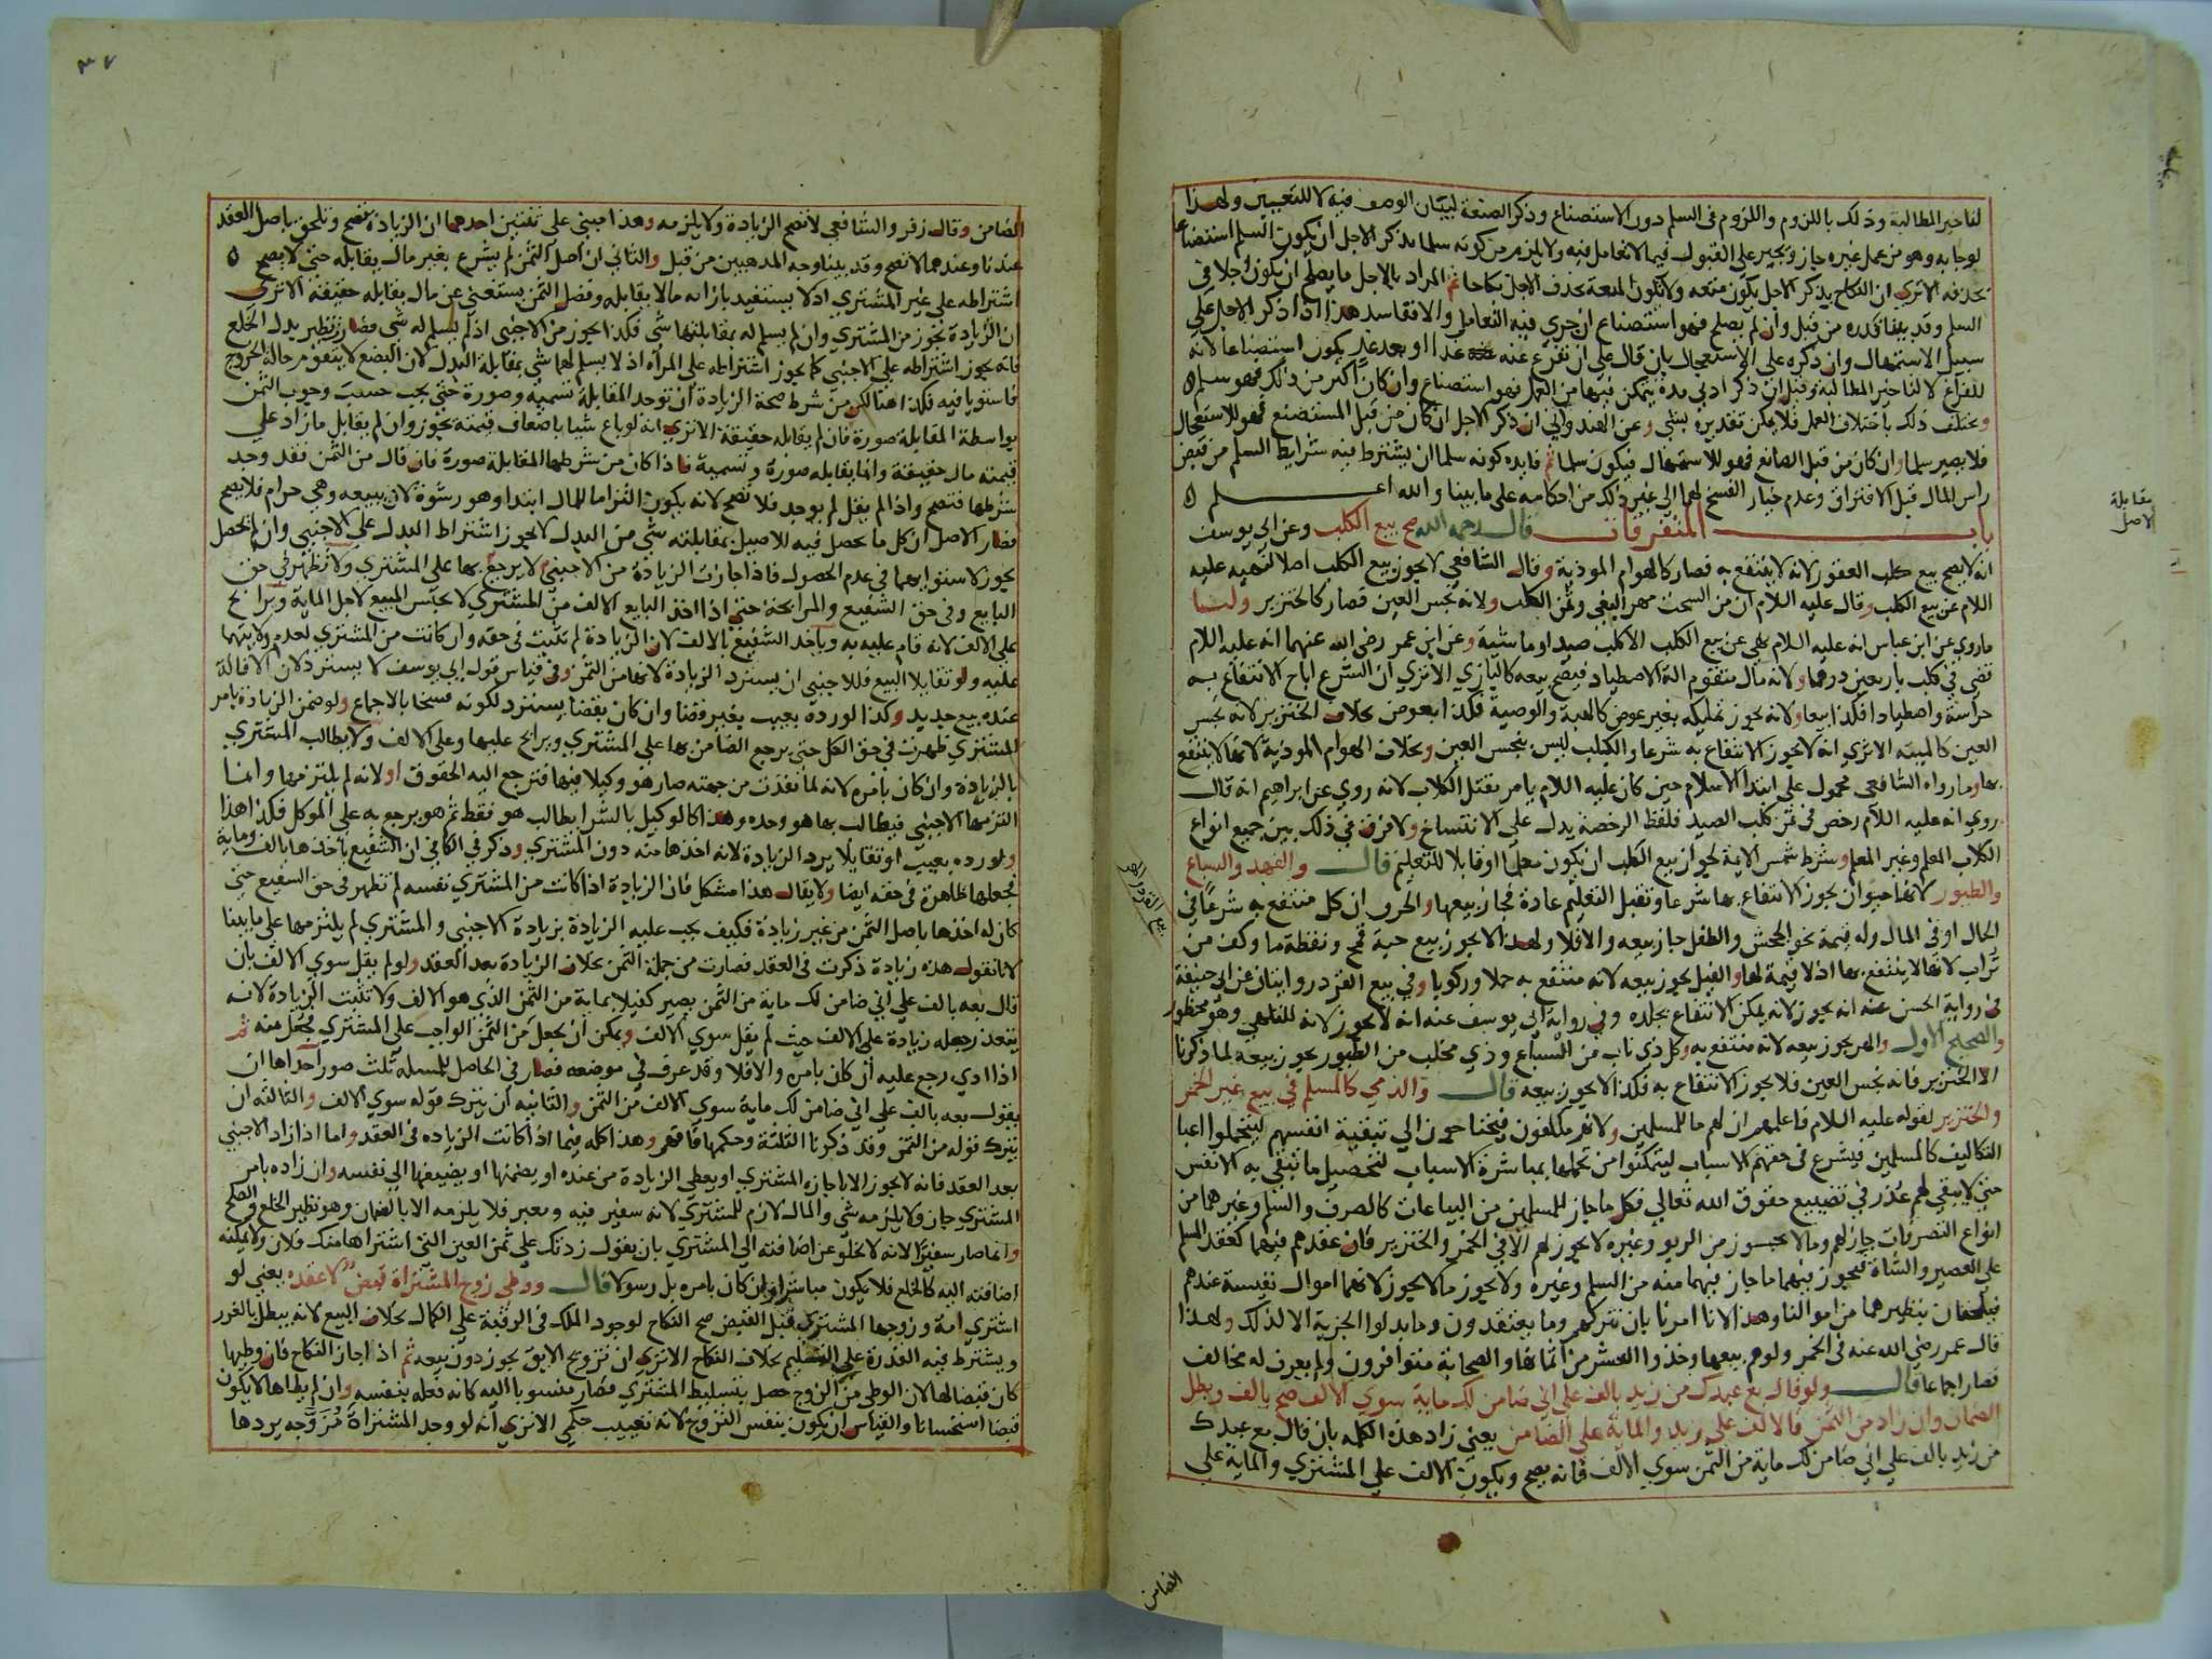 لتاخير المطالبة وذلك باللزوم واللزوم فى السلم دون الاستصناع وذكر الصنعة لبيان الوصف فيه لا للتعيين ولهذا
لوجا به وهو من عمل غيره جاز ويجبر على القبول فيما لا تعامل فيه ولا يلزم من كونه سلما بذكر الاجل ان يكون السلم استصناعا
بحذفه الا ترى ان النكاح بذكر الاجل يكون متعه ولا تكون المتعة بحذف الاجل نكاحا ثم المراد بالاجل ما يصلح ان يكون اجلا فى
السلم وقد بينا قدره من قبل وان لم يصلح فهو استصناع ان جرى فيه التعامل والا فقاسد هذا اذا ذكر الاجل على
سبيل الاستمهال وان ذكره على الاستعجال بان قال على ان تفرغ عنه غدا او بعد غد يكون استصناعا لانه
للفراغ لا لتاخير المطالبة وقيل ان ذكر ادنى مدة يتمكن فيها من العمل فهو استصناع وان كان اكثر من ذلك فهو سلم
ويختلف ذلك باختلاف العمل فلا يمكن تقديره بشى وعن الهندوانى ان ذكر الاجل ان كان من قبل المستصنع فهو للاستعجال
فلا يصير سلما وان كان من قبل الصانع فهو للاستمهال فيكون سلما ثم فايده كونه سلما ان يشترط فيه شرايط السلم من قبض
راس المال قبل الافتراق وعدم خيار الفسخ لهما الى غير ذلك من احكامه على ما بينا والله اعلم
باب المتفرقات قال رحمه الله صح بيع الكلب وعن ابى يوسف
انه لا يصح بيع كلب العقور لانه لا ينتفع به فصار كالهوام الموذية وقال الشافعى لا يجوز بيع الكلب اصلا لنهيه عليه
اللام عن بيع الكلب وقال عليه اللام ان من السحت مهر البغى وثمن الكلب ولانه نجس العين فصار كالخنزير ولنا
ماروى عن ابن عباس انه عليه اللام نهى عن بيع الكلب الا كلب صيد او ماشية وعن ابن عمر رضى الله عنهما انه عليه اللام
قضى فى كلب باربعين درهما ولانه مال متقوم الة الاصطياد فيصح بيعه كالبازى الا ترى ان الشرع اباح الانتفاع به
حراسة واصطيادا فكذا بيعا ولانه يجوز تمليكه بغير عوض كالهبة والوصية فكذا بعوض بخلاف الخنزير لانه نجس
العين كالميتة الا ترى انه لا يجوز الانتفاع به شرعا والكيلب ليس بنجس العين وبخلاف الهوام الموذية لانها لا ينتفع
بها وما رواه الشافعى محمول على ابتدا الاسلام حين كان عليه اللام يامر بقتل الكلاب لانه روى عن ابراهيم انه قال
روى انه عليه اللام رخص فى ثمن كلب الصيد فلفظ الرخصة يدل على الانتساخ ولا فرق فى ذلك بين جميع انواع
الكلاب المعلم وغير المعلم وشرط شمس الايمة لجواز بيع الكلب ان يكون معلما او قابلا للتعليم قال والفهد والسباع
والطيور لانها حيوان يجوز الانتفاع بها شرعا وتقبل التعليم عادة فجاز بيعها والحرف ان كل منتفع به شرعا فى
الحال او فى المال وله قيمة نحو الجحش والطفل جاز بيعه والا فلا ولهذا لا يجوز بيع حبة قمح ونقطة ما وكف من
تراب لانها لا ينتفع بها اذ لا قيمة لها والفيل يجوز بيعه لانه منتفع به حملا وركوبا وفى بيع القرد روايتان عن ابى حنيفة
فى رواية الحسن عنه انه يجوز لانه يمكن الانتفاع بجلده وفى رواية ابى يوسف عنه انه لا يجوز لانه للتلاهى وهو محظور
والصحيح الاول والهر يجوز بيعه لانه منتفع به وكل ذى ناب من السباع وذى مخلب من الطيور يجوز بيعه لما ذكرنا
الا الخنزير فانه نجس العين فلا يجوز الانتفاع به فكذا لا يجوز بيعه قال والذمى كالمسلم فى بيع غير الخمر
والخنزير لقوله عليه اللام فاعلمهم ان لهم ما للمسلمين ولانهم مكلفون فيحتاجون الى تبقية انفسهم ليتحملوا اعبا
التكاليف كالمسلمين فيشرع فى حقهم الاسباب ليتمكنوا من تحملها بمباشرة الاسباب لتحصيل ما تبقى به الانفس
حتى لا يبقى لهم عذر فى تضييع حقوق الله تعالى فكل ما جاز للمسلمين من البياعات كالصرف والسلم وغيرهما من
انواع التصرفات جاز لهم وما لا يجوز من الربو وغيره لا يجوز لهم الا فى الخمر والخنزير فان عقدهم فيهما كعقد المسلم
على العصير والشاة فيجوز فيهما ما جاز فيهما منه من السلم وغيره ولا يجوز مالا يجوز لانهما اموال نفيسة عندهم
فيلحقان بنظيرهما من اموالنا وهذا لانا امرنا بان نتركهم وما يعتقدون وما بدلوا الجزية الا لذلك ولهذا
قال عمر رضى الله عنه فى الخمر ولوهم بيعها وخذوا العشر من اثمانها والصحابة متوافرون ولم يعرف له مخالف
فصار اجماعا قال ولو قال بع عبدك من زيد بالف على انى ضامن لك ماية سوى الالف صح بالف وبطل
الضمان وان زاد من الثمن فالالف على زيد والماية على الضامن يعنى زاد هذه الكلمه بان قال بع عبدك
من زيد بالف على انى ضامن لك ماية من الثمن سوى الالف فانه يصح ويكون الالف على المشترى والماية على
الضامن
مقابلة
الاصل
٣٧
الضامن وقال زفر والشافعى لا تصح الزيادة ولا يلزمه وهذا مبنى على شيئين احدهما ان الزيادة تصح وتلحق باصل العقد
عندنا وعندهما لا تصح وقد بينا وجه المذهبين من قبل والثانى ان اصل الثمن لم يشرع بغير مال يقابله حتى لا يصح
اشتراطه على غير المشترى اذ لا يستفيد بازائه مالا يقابله وفضل الثمن يستغنى عن مال يقابله حقيقة الا ترى
ان الزيادة تجوز من المشترى وان لم يسلم له بمقابلتها شى فكذا يجوز من الاجنبى اذ لم يسلم له شى فصار نظير بدل الخلع
فانه يجوز اشتراطه على الاجنبى كما يجوز اشتراطه على المرأه اذ لا يسلم لها شى بمقابلة البدل لان البضع لا يتقوم حالة الخروج
فاستويا فيه فكذا هنا لكن من شرط صحة الزيادة ان توجد المقابلة تسمية وصورة حتى يجب حسب وجوب الثمن
بواسطة المقابلة صورة فان لم يقابله حقيقة الا ترى انه لو باع شيا باضعاف قيمته يجوز وان لم يقابل مازاد على
قيمته مال حقيقة وانما يقابله صورة وتسمية فاذا كان من شرطها المقابلة صورة فان قال من الثمن فقد وجد
شرطها فتصح واذا لم يقل لم يوجد فلا تصح لانه يكون التزاما للمال ابتدا وهو رشوة لان يبيعه وهى حرام فلا يصح
فصار الاصل ان كل ما يحصل فيه للاصيل بمقابلته شى من البدل لا يجوز اشتراط البدل على الاجنبى وان لم تحصل
يجوز لاستوايهما فى عدم الحصول فاذا جازت الزيادة من الاجنبى لا يرجع بها على المشترى ولا تظهر فى حق
البايع وفى حق الشفيع والمرابحة حتى اذا اخذ البايع الالف من المشترى لا يحبس المبيع لاجل الماية ويرابح
على الالف لانه قام عليه به وياخذ الشفيع بالالف لان الزيادة لم تثبت فى حقه وان كانت من المشترى لعدم ولايتهما
عليه ولو تقايلا البيع فللاجنبى ان يسترد الزيادة لانها من الثمن وفى قياس قول ابى يوسف لا يسترد لان الاقالة
عنده بيع جديد وكذا لو رده بعيب بغير قضا وان كان بقضا يسترد لكونه فسخا بالاجماع ولو ضمن الزيادة بامر
المشترى ظهرت فى حق الكل حتى يرجع الضامن بها على المشترى ويرابح عليها وعلى الالف ولا يطالب المشترى
بالزيادة وان كان بامره لانه لما نفذت من جهته صار هو وكيلا فيها فترجع اليه الحقوق او لانه لم يلتزمها وانما
التزمها الاجنبى فيطالب بها هو وحده وهذا كالوكيل بالشرا يطالب هو فقط ثم هو يرجع به على الموكل فكذا هذا
ولو رده بعيب او تقايلا يرد الزيادة لانه اخذها منه دون المشترى وذكر فى الكافى ان الشفيع ياخذها بالف وماية
فجعلها ظاهرة فى حقه ايضا ولا يقال هذا مشكل فان الزيادة اذا كانت من المشترى نفسه لم تظهر فى حق الشفيع حتى
كان له اخذها باصل الثمن من غير زيادة فكيف يجب عليه الزيادة بزيادة الاجنبى والمشترى لم يلتزمها على ما بينا
لانا نقول هذه زيادة ذكرت فى العقد فصارت من جملة الثمن بخلاف الزيادة بعد العقد ولو لم يقل سوى الالف بان
قال بعه بالف على انى ضامن لك ماية من الثمن يصير كفيلا بماية من الثمن الذى هو الالف ولا تثبت الزيادة لانه
يتعذر جعله زيادة على الالف حيث لم يقل سوى الالف ويمكن ان يجعل من الثمن الواجب على المشترى فجعل منه ثم
اذا ادى رجع عليه ان كان بامره والا فلا وقد عرف فى موضعه فصار فى الحاصل للمسله ثلث صور احداها ان
يقول بعه بالف على انى ضامن لك ماية سوى الالف من الثمن والثانيه ان يترك قوله سوى الالف والثالثه ان
يترك قوله من الثمن وقد ذكرنا الثلثة وحكمها فافهم وهذا كله فيما اذا كانت الزياده فى العقد واما اذا زاد الاجنبى
بعد العقد فانه لا يجوز الا باجازه المشترى او يعطى الزيادة من عنده او يضمنها او يضيفها الى نفسه وان زاده بامر
المشترى جاز ولا يلزمه شى والمال لازم للمشترى لانه سفير فيه ومعبر فلا يلزمه الا بالضمان وهو نظير الخلع والصلح
وانما صار سفيرا لانه لا يخلو عن اضافته الى المشترى بان يقول زدتك على ثمن العين التى اشتراها منك فلان ولا يمكنه
اضافته اليه كالخلع فلا يكون مباشرا وان كان بامره بل رسولا قال ووطى زوج المشتراة قبض لا عقده يعنى لو
اشترى امة وزوجها المشترى قبل القبض صح النكاح لوجود الملك فى الرقبة على الكمال بخلاف البيع لانه يبطل بالغرر
ويشترط فيه القدرة على التسليم بخلاف النكاح الا ترى ان تزويج الابق يجوز دون بيعه ثم اذا جاز النكاح فان وطيها
كان قبضا لها لان الوطى من الزوج حصل بتسليط المشترى فصار منسوبا اليه كانه فعله بنفسه وان لم يطاها لا يكون
قبضا استحسانا والقياس ان يكون بنفس التزوج لانه تعييب حكمى الا ترى انه لو وجد المشتراة مزوجه يردها